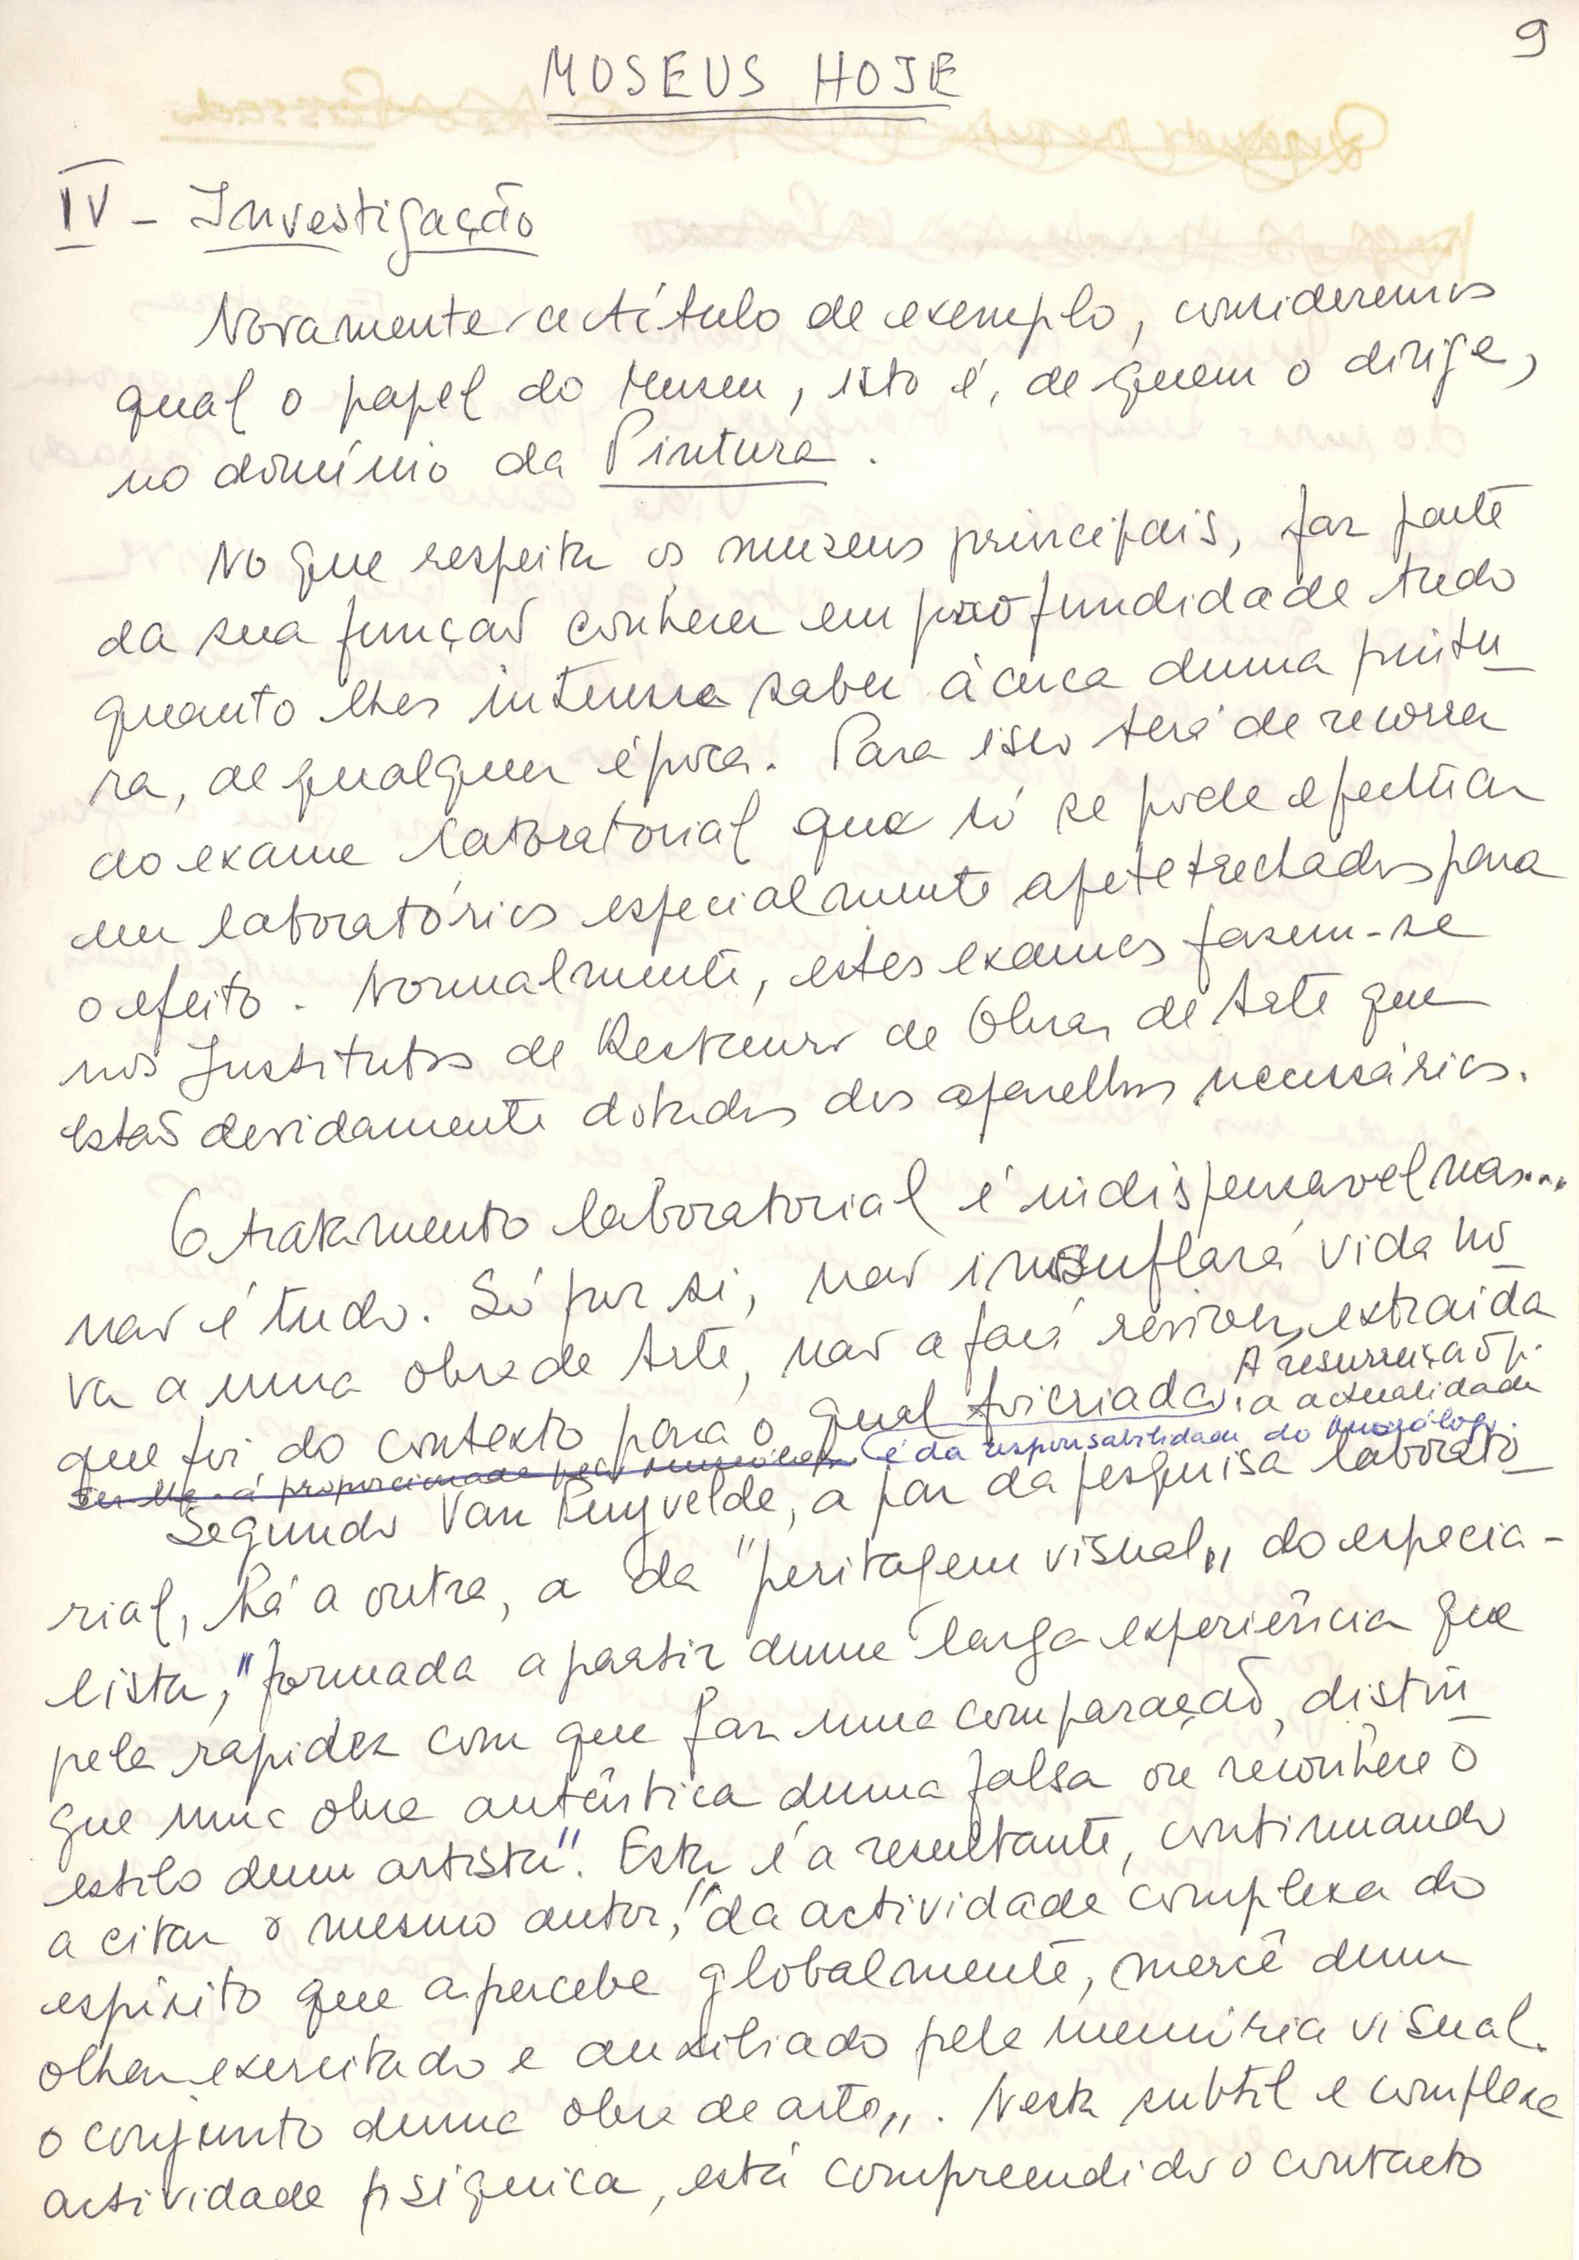 9
MUSEUS HOJE
IV - Investigação
Novamente a título de exemplo, consideremos
qual o papel do Museu, isto é, de quem o dirige,
no domínio da Pintura.
No que respeita os museus principais, faz parte
da sua função conhecer em profundidade tudo
quanto lhes interessa saber àcerca duma pintu-
ra, de qualquer época. Para isso terá de recorrer
ao exame laboratorial que só se pode efectuar
em laboratórios especialmente apetrechados para
o efeito. Normalmente, estes exames fazem-se
nos Institutos de Restauro de Obras de Arte que
estão devidamente dotados dos aparelhos necessários.
O tratamento laboratorial é indispensavel mas...
não é tudo. Só por si, não insuflará vida no-
va a uma obra de Arte, não a fará reviver, extraída
que foi do contexto para o qual foi criada. A resurreição p.
a actualidade
ser-lhe-á proporcionada pelo museólogo é da responsabilidade do Museólogo.
Segundo Van Puyvelde, a par da pesquisa laborato-
rial, há a outra, a da "peritagem visual" do especia-
lista, "formada a partir duma larga experiência que
pela rapidez com que faz uma comparação, distin-
gue uma obra autêntica duma falsa ou reconhece o
estilo dum artista". Esta é a resultante, continuando
a citar o mesmo autor, "da actividade complexa do
espírito que apercebe globalmente, mercê dum
olhar exercitado e auxiliado pela memória visual.
o conjunto duma obra de arte". Nesta subtil e complexa
actividade psíquica, está compreendido o contacto